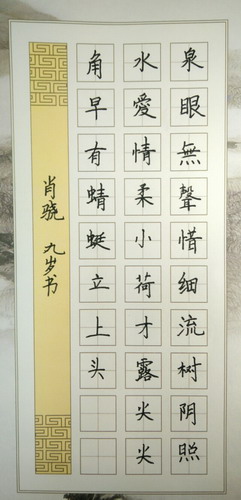 泉眼無聲惜细流树阴照
水愛情柔小荷才露尖尖
角早有蜻蜓立上头
肖骁 九岁书